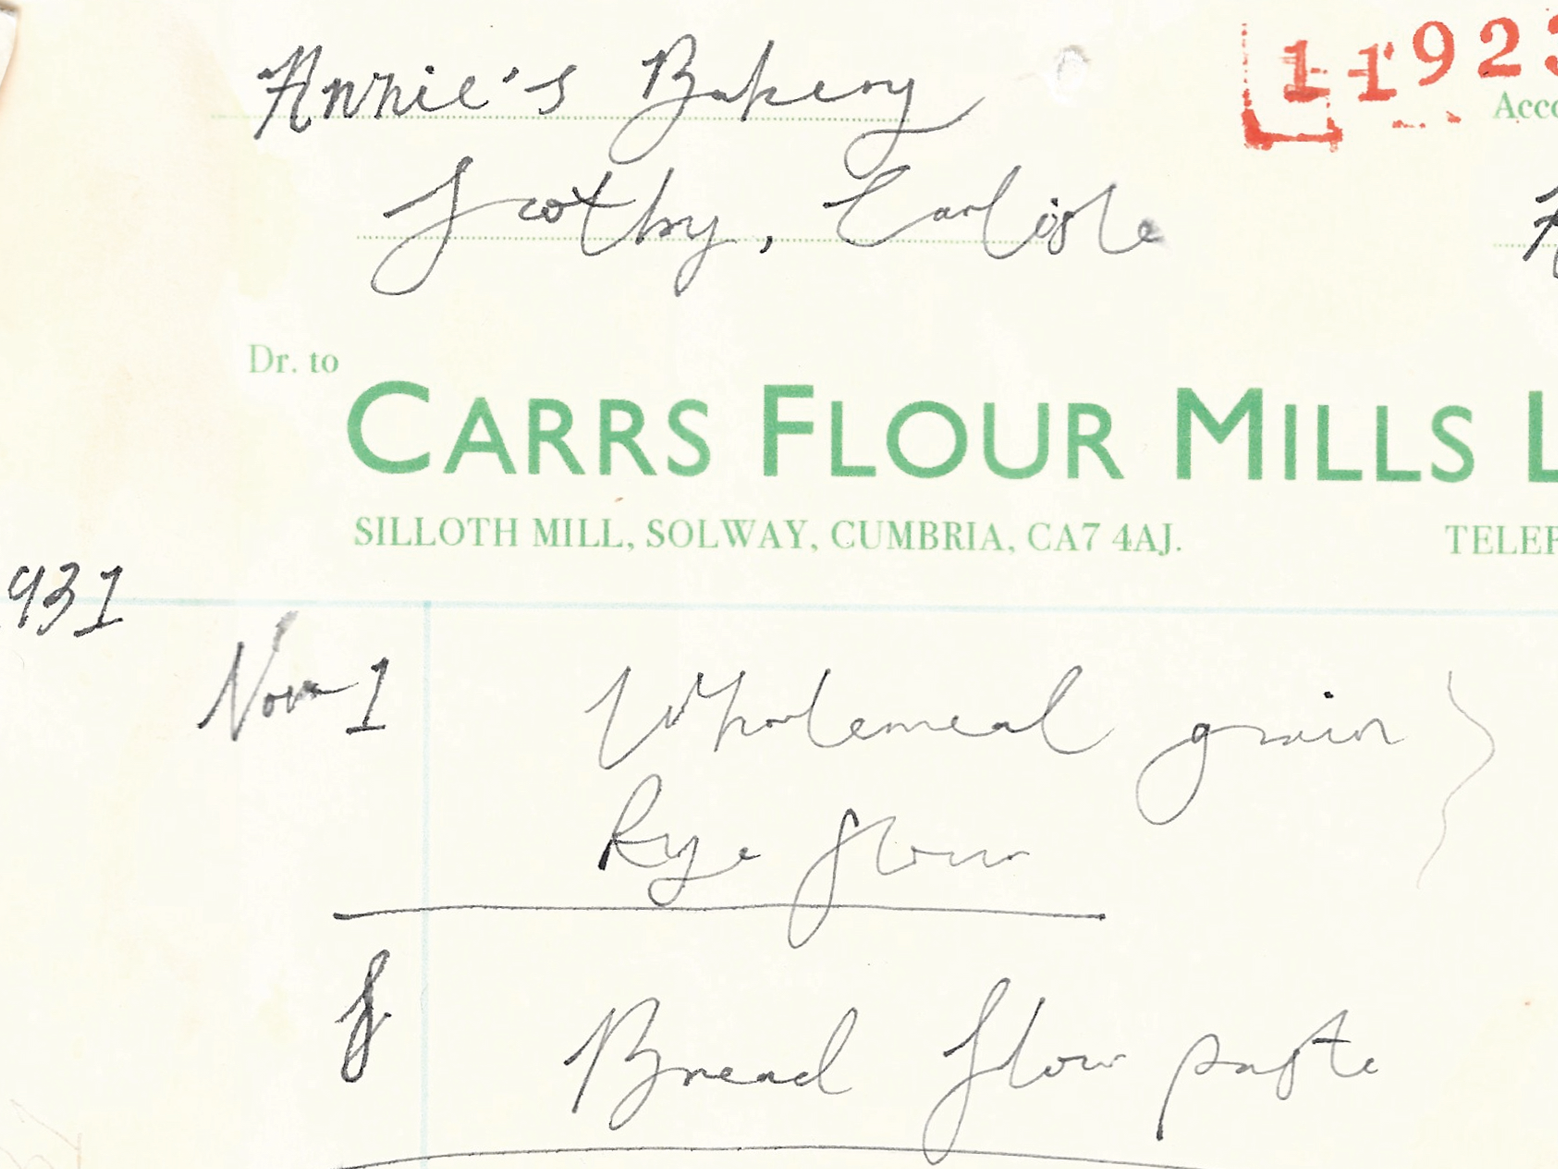 Annie's Bakery
11923
Acco
Scotby, Carlisle
Dr. to
CARRS FLOUR MILLS L
SILLOTH MILL, SOLWAY, CUMBRIA, CA7 4AJ.
TELEP
931
Nov 1 Wholemeal grain
Rye flour
Bread flour paste